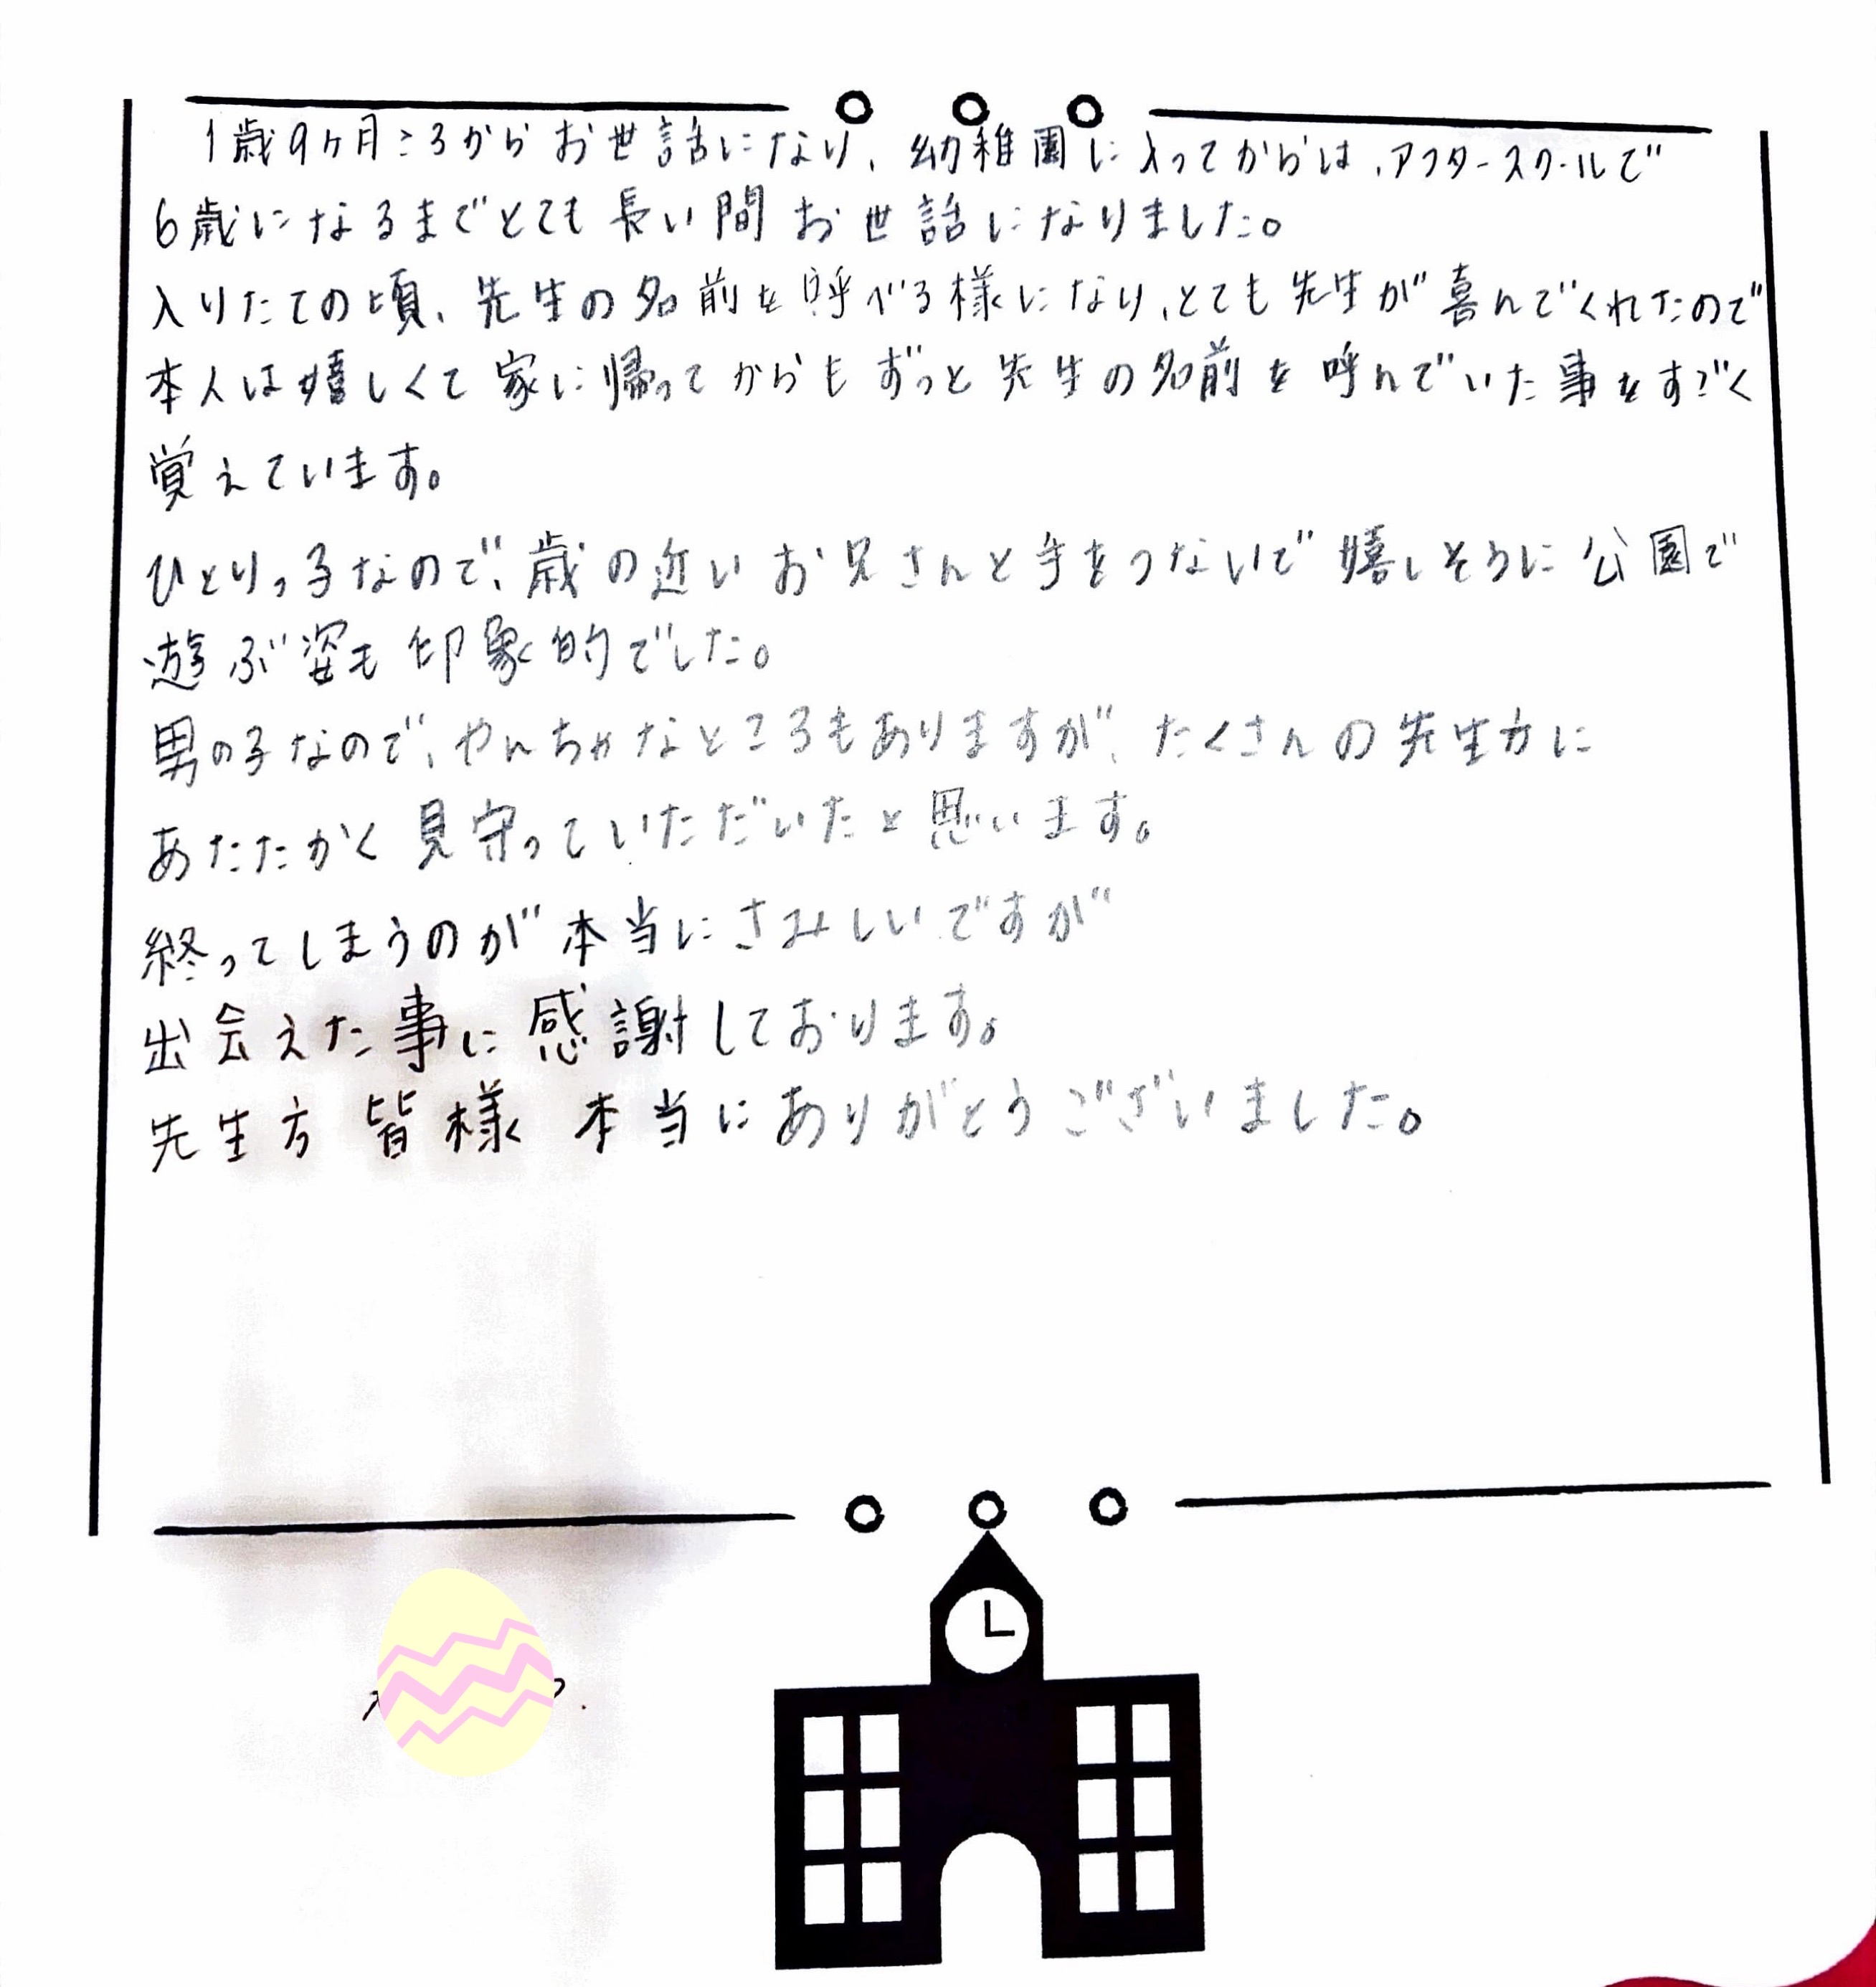 1歳9ヶ月ころからお世話になり、幼稚園に入ってからは、アフタースクールで
6歳になるまでとても長い間お世話になりました。
入りたての頃、先生の名前を呼べる様になり、とても先生が喜んでくれたので
本人は嬉しくて家に帰ってからもずっと先生の名前を呼んでいた事をすごく
覚えています。
ひとりっ子なので、歳の近いお兄さんと手をつないで嬉しそうに公園で
遊ぶ姿も印象的でした。
男の子なので、やんちゃなところもありますが、たくさんの先生方に
あたたかく見守っていただいたと思います。
終ってしまうのが本当にさみしいですが
出会えた事に感謝しております。
先生方 皆様 本当にありがとうございました。